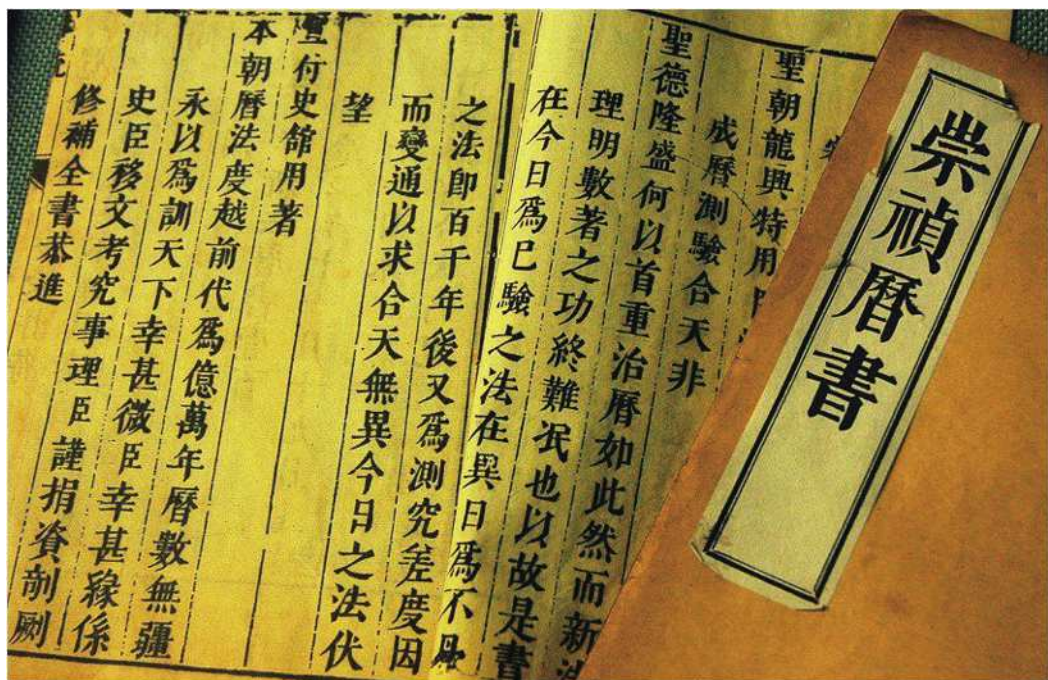 崇禎曆書
聖朝龍興特用
成曆測驗合天非
聖德隆盛何以首重治曆如此然而新
理明數著之功終難泯也以故是書
在今日爲巳驗之法在異日爲不
之法即百千年後又爲測究差度因
而變通以求合天無異今日之法伏
望
宣付史館用著
本朝曆法度越前代爲億萬年曆數無疆
永以爲訓天下幸甚微臣幸甚緣係
史臣移文考究事理臣謹捐資剞劂
修補全書恭進